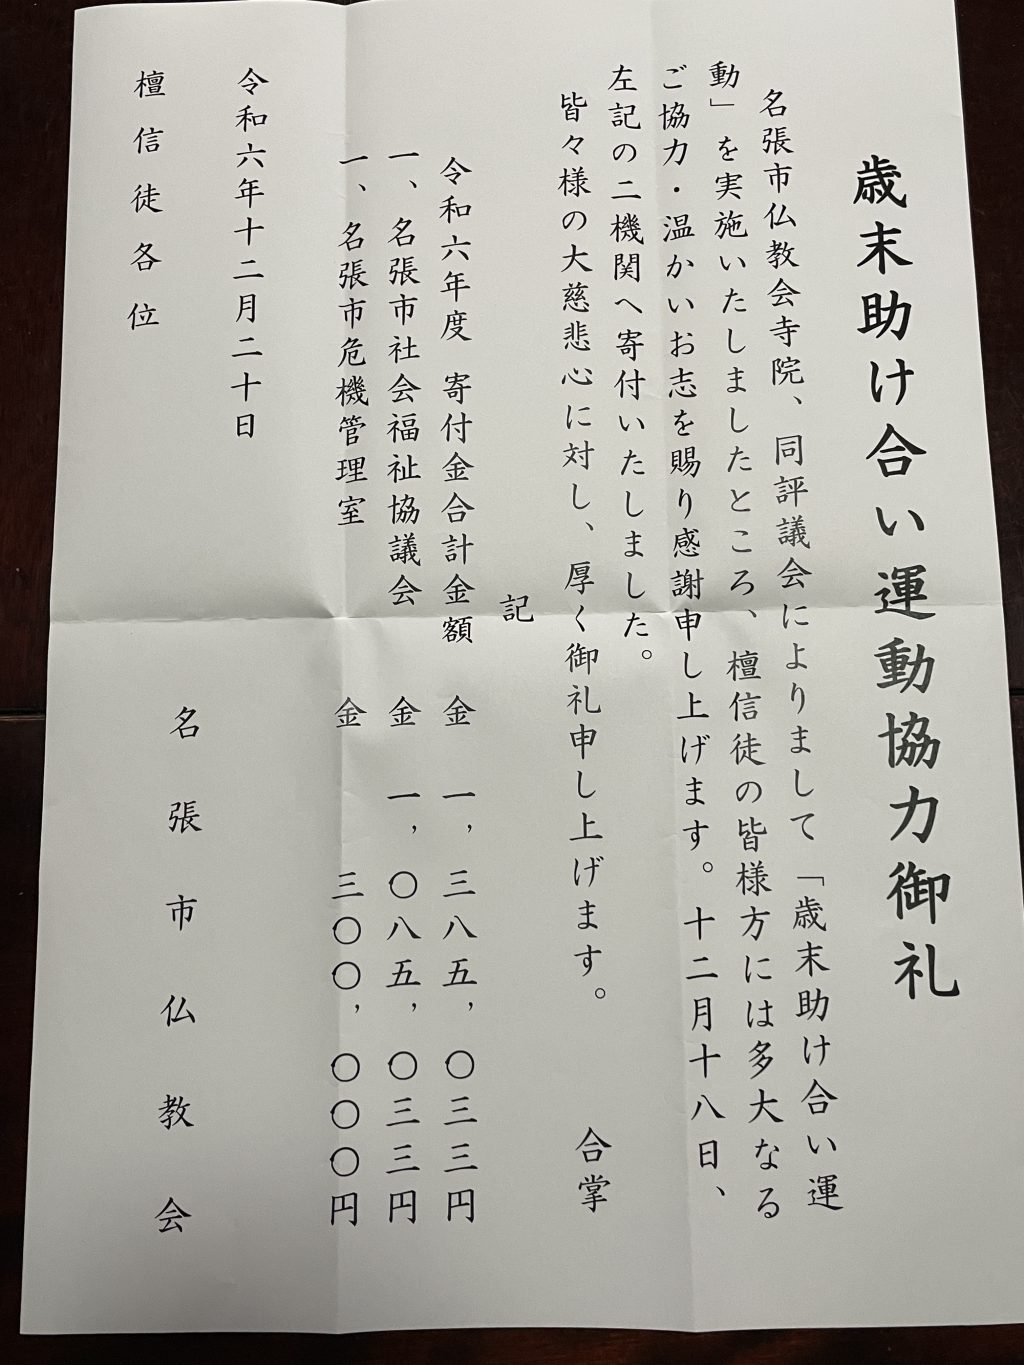 歳末助け合い運動協力御礼
名張市仏教会寺院、同評議会によりまして「歳末助け合い運
動」を実施いたしましたところ、檀信徒の皆様方には多大なる
ご協力・温かいお志を賜り感謝申し上げます。十二月十八日、
左記の二機関へ寄付いたしました。
皆々様の大慈悲心に対し、厚く御礼申し上げます。 合掌
記
令和六年度 寄付金合計金額 金 一，三八五，〇三三円
一、名張市社会福祉協議会 金 一，〇八五，〇三三円
一、名張市危機管理室 金 三〇〇，〇〇〇円
令和六年十二月二十日
名張市仏教会
檀信徒各位